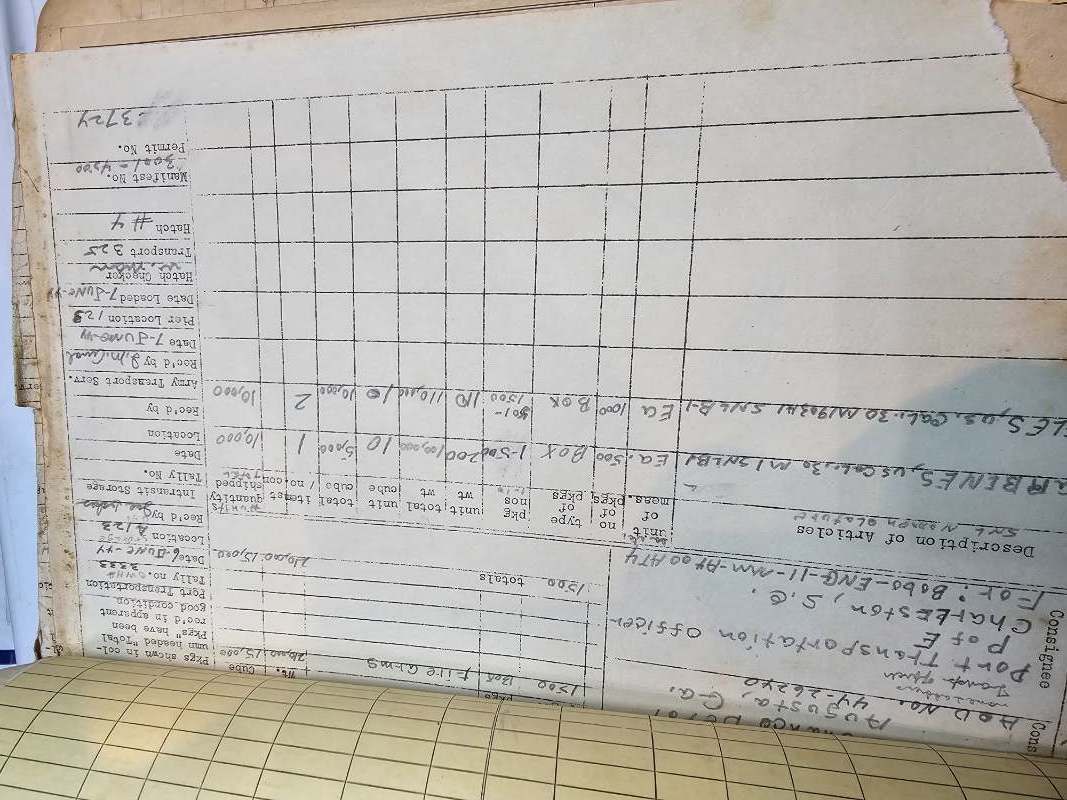 Ordnance Depot
Augusta, Ga.
AOD NO. 44-26240
Consignee
Port Transportation Officer
P of E
Charleston, S.C.
For: Bobo-ENG-11-MM-
1500 Box Firearms 210,000 15,000
1500 totals 210,000 15,000
Description of Articles
SNL Nomenclature
unit of meas.
no of pkgs
type of pkgs
pkg nos
unit wt
total wt
unit cube
total cube
item no.
quantity shipped
CARBINES, US Cal. 30 M1 SNL B-
Ea. 500 BOX 1-500 200 100,000 10 5,000 1 10,000
RIFLES, U.S. Cal. .30 M1903A1 SNL B-
Ea 1000 BOX 501-1500 110 110,000 10 10,000 2 10,000
Wt. Cube
Pkgs shown in col-
umn headed "Total
Pkgs" have been
rec'd in apparent
good condition
Port Transportation
Tally no. 3333
Date 6-JUNE-44
Location A123
Rec'd by
Intransit Storage
Tally No.
Date
Location
Rec'd by
Army Transport Serv.
Rec'd by
Date 7-JUNE-44
Pier Location 123
Date Loaded 7-JUNE-44
Hatch Checker
Transport 325
Hatch #4
Manifest No.
3001-4500
Permit No.
3724